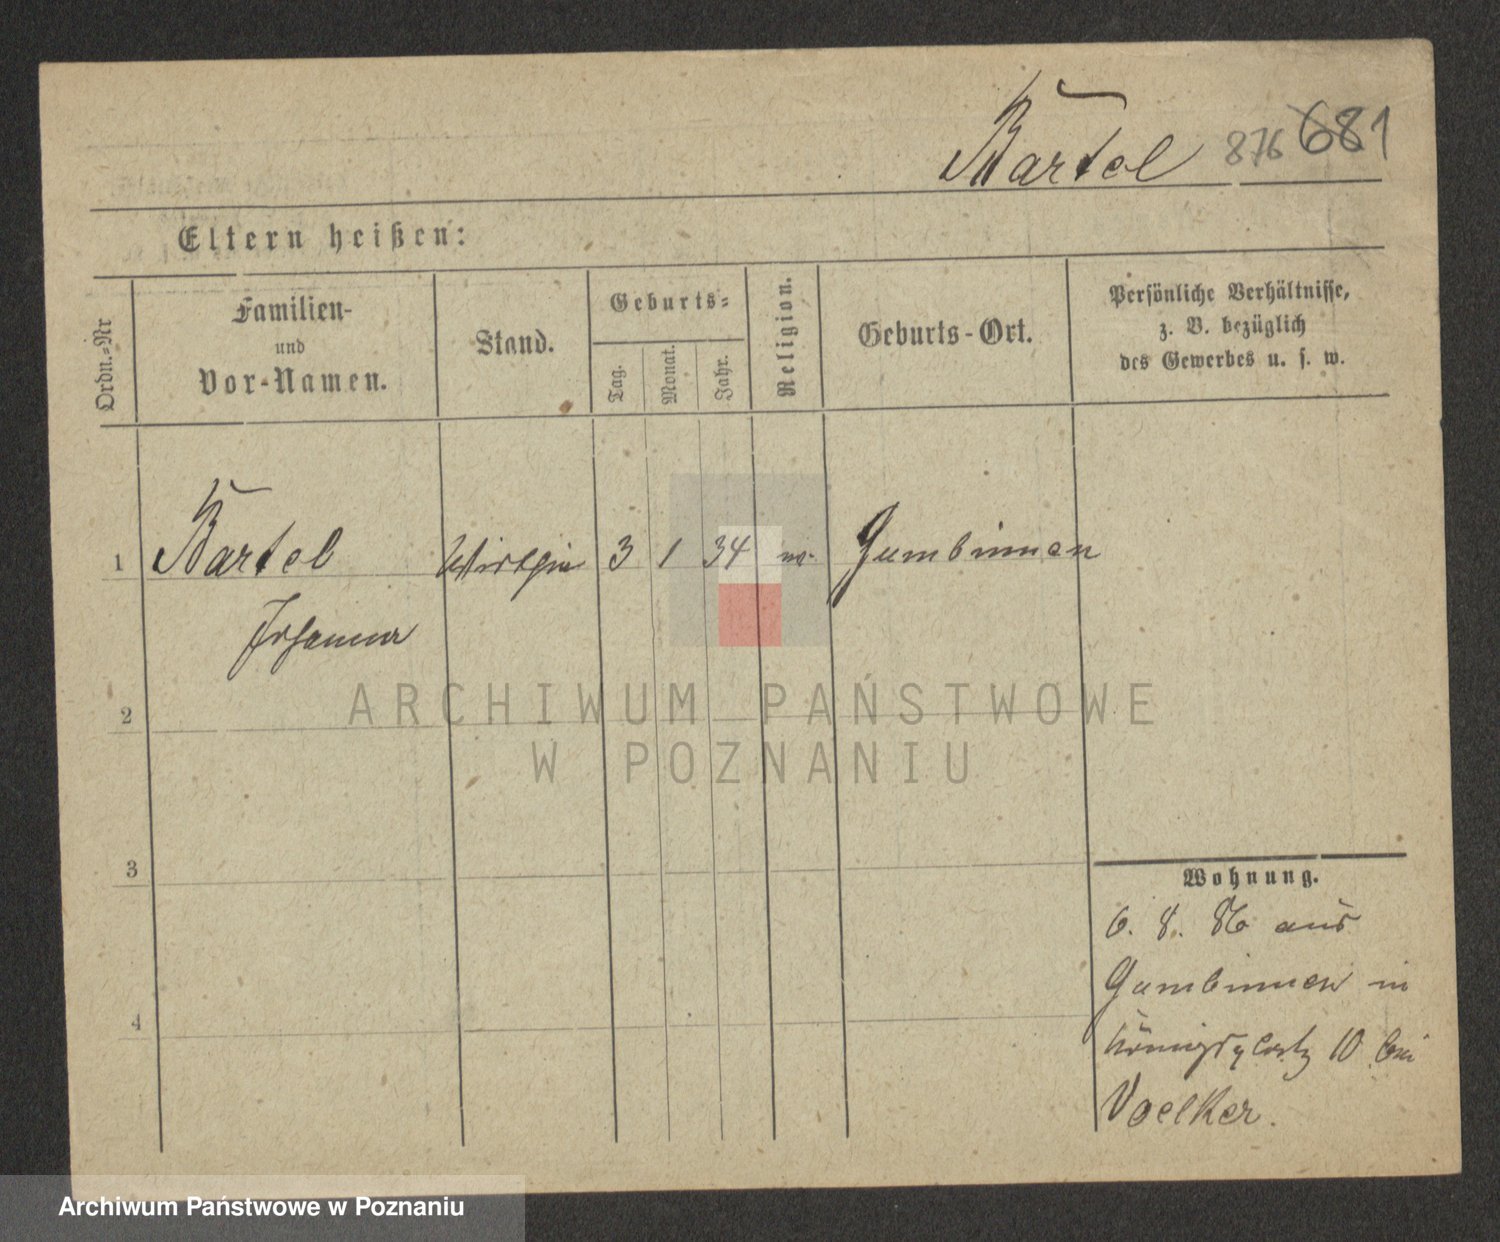 Bartel 876 681
Eltern heißen:
Ordn.-Nr
Familien-
und
Vor-Namen.
Stand.
Geburts-
Tag.
Monat.
Jahr.
Religion.
Geburts-Ort.
Persönliche Verhältnisse,
z. B. bezüglich
des Gewerbes u. s. w.
1 Bartel Wirthin 3 1 34 Gumbinnen
Johanna
2
3
4
Wohnung.
6. 8. 86 aus
Gumbinnen in
Königsplatz 10 bei
Voelker.
ARCHIWUM PAŃSTWOWE
W POZNANIU
Archiwum Państwowe w Poznaniu